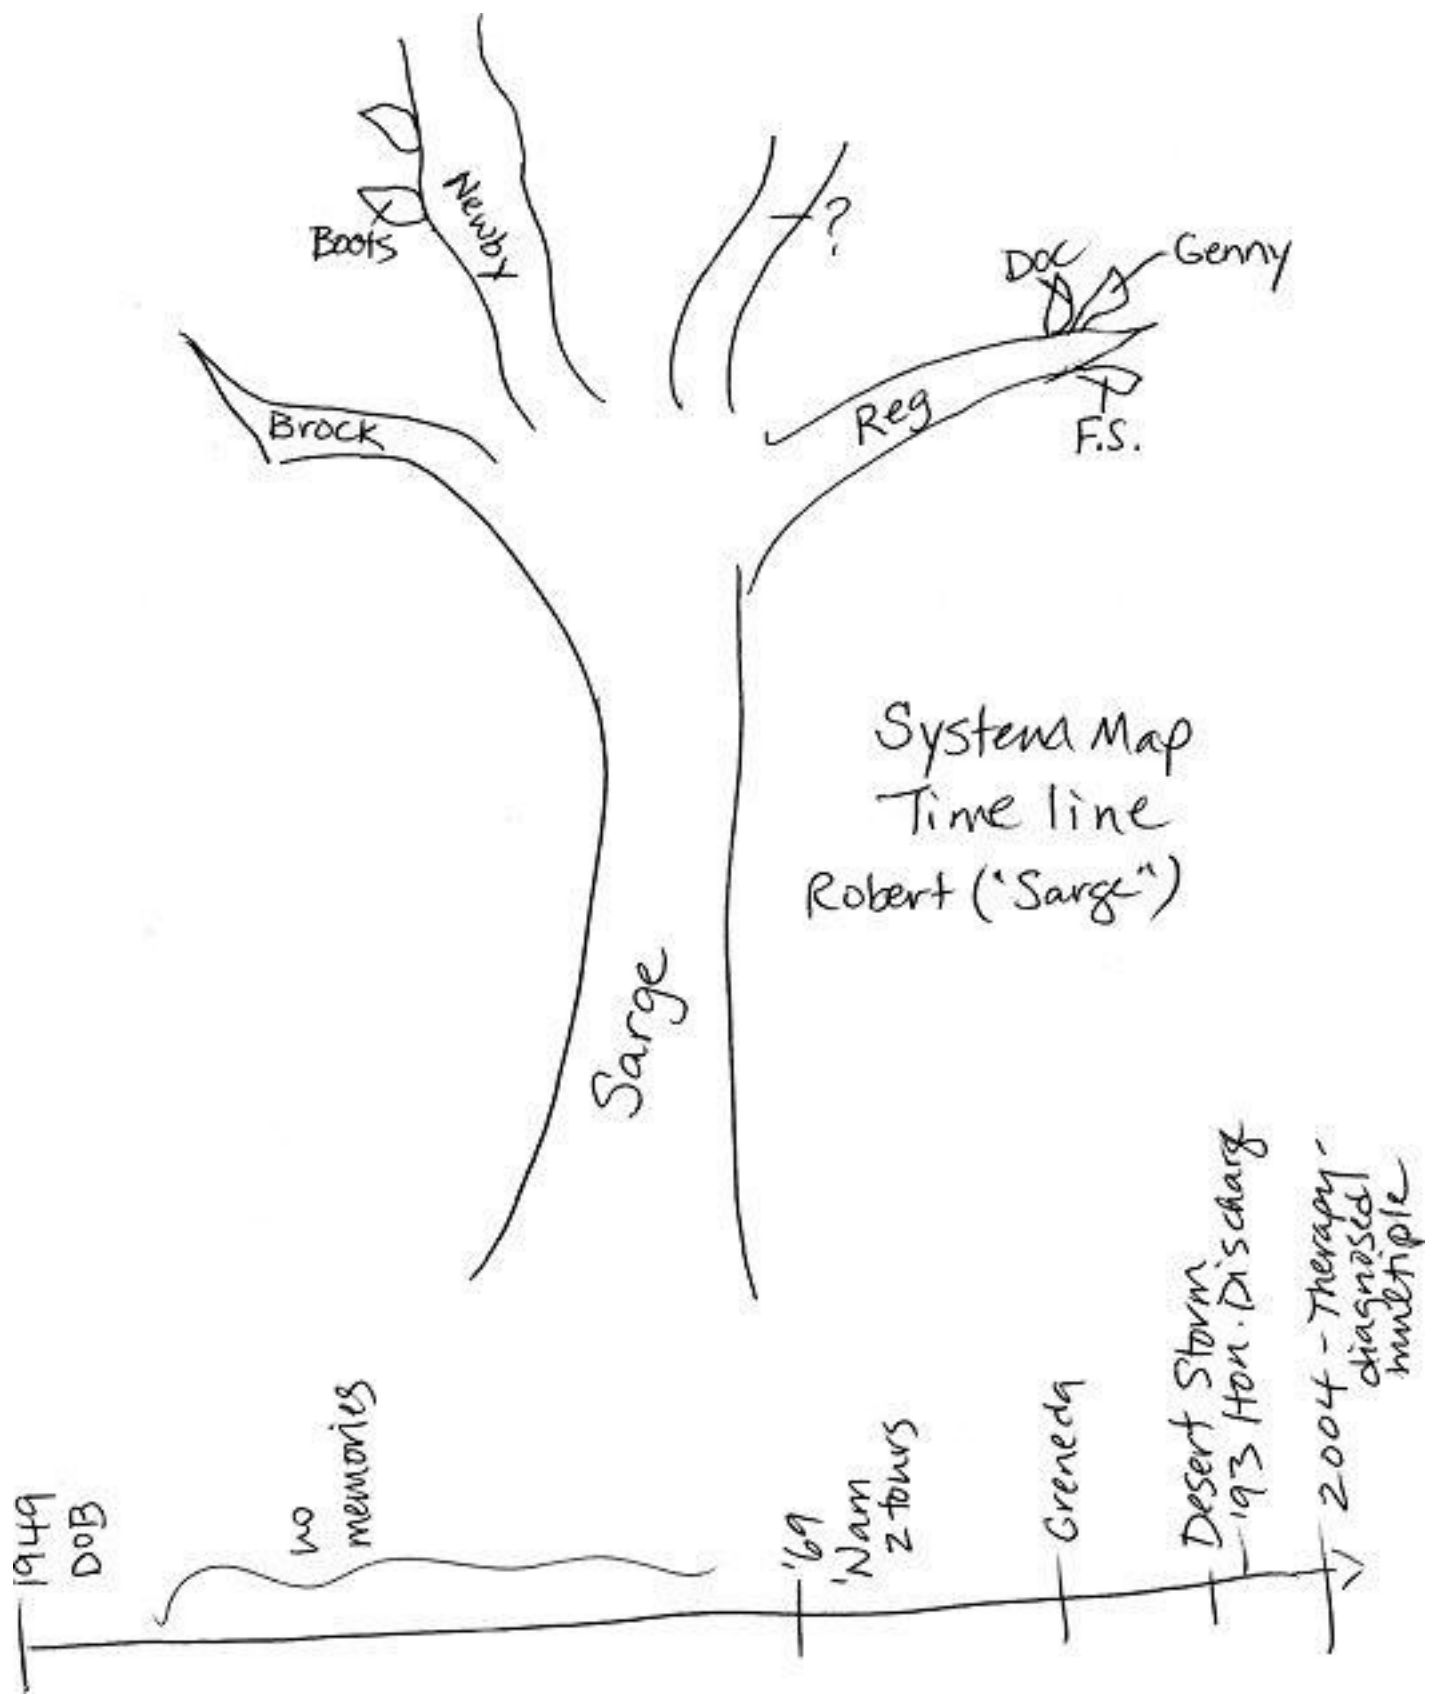 Newby
Boots
?
Doc
Genny
Brock
Reg
F.S.
System Map
Time line
Robert ("Sarge")
Sarge
1949
DOB
no
memories
'69
'Nam
2 tours
Greneda
Desert Storm
'93 Hon. Discharg
2004 - Therapy -
diagnosed
multiple